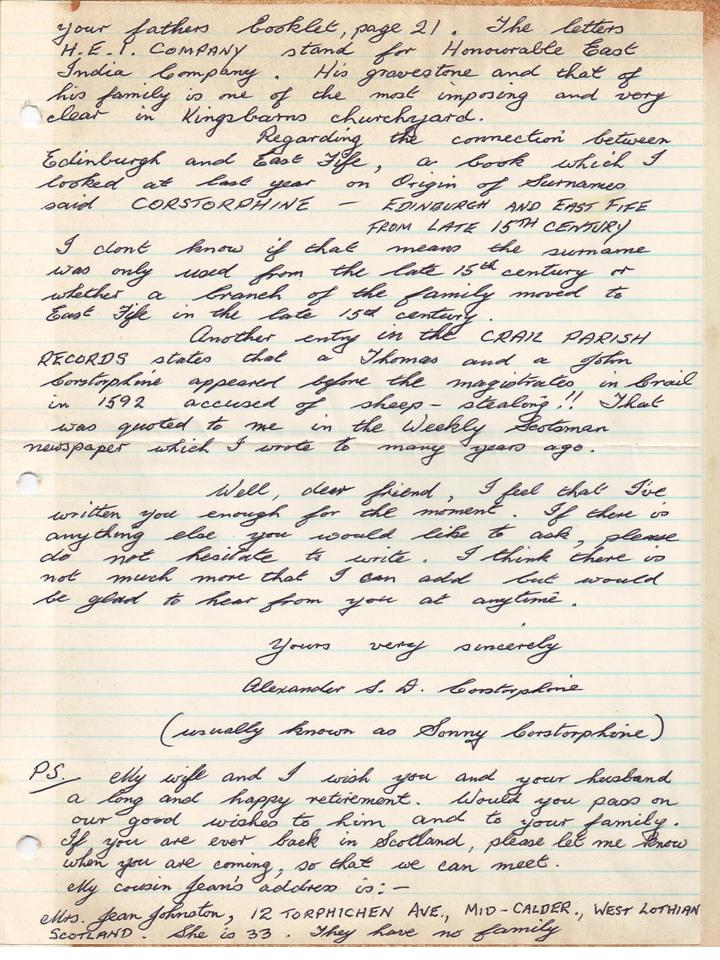 your fathers booklet, page 21. The letters
H.E.I. COMPANY stand for Honourable East
India Company. His gravestone and that of
his family is one of the most imposing and very
clear in Kingsbarns churchyard.
Regarding the connection between
Edinburgh and East Fife, a book which I
looked at last year on Origin of Surnames
said CORSTORPHINE — EDINBURGH AND EAST FIFE
FROM LATE 15TH CENTURY
I dont know if that means the surname
was only used from the late 15th century or
whether a branch of the family moved to
East Fife in the late 15th century.
Another entry in the CRAIL PARISH
RECORDS states that a Thomas and a John
Corstorphine appeared before the magistrates in Crail
in 1592 accused of sheep-stealing!! That
was quoted to me in the Weekly Scotsman
newspaper which I wrote to many years ago.
Well, dear friend, I feel that I've
written you enough for the moment. If there is
anything else you would like to ask, please
do not hesitate to write. I think there is
not much more that I can add but would
be glad to hear from you at anytime.
Yours very sincerely
Alexander S. D. Corstorphine
(usually known as Sonny Corstorphine)
PS. My wife and I wish you and your husband
a long and happy retirement. Would you pass on
our good wishes to him and to your family.
If you are ever back in Scotland, please let me know
when you are coming, so that we can meet.
My cousin Jean's address is:-
Mrs. Jean Johnston, 12 TORPHICHEN AVE., MID-CALDER., WEST LOTHIAN
SCOTLAND. She is 33. They have no family